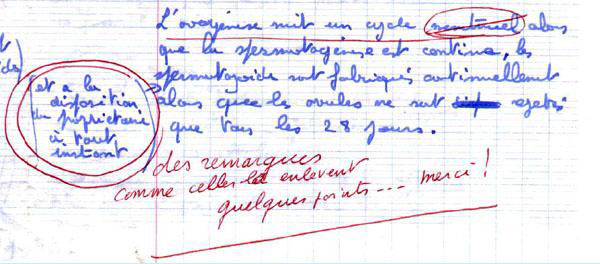 L'ovogénèse suit un cycle menstruel alors
que la spermatogénèse est continue, les
spermatozoïdes sont fabriqués continuellement
alors que les ovules ne sont rejetés
que tous les 28 jours.
(et à la
disposition
du propriétaire
à tout
instant)
des remarques
comme celles là enlèvent
quelques points... merci !